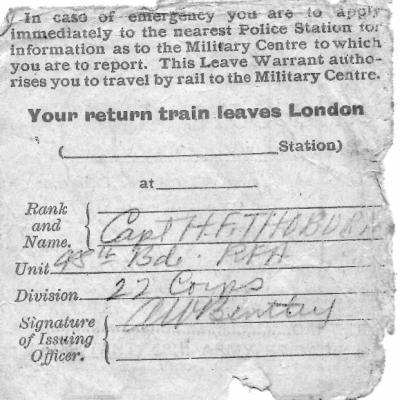 In case of emergency you are to apply
immediately to the nearest Police Station for
information as to the Military Centre to which
you are to report. This Leave Warrant autho-
rises you to travel by rail to the Military Centre.
Your return train leaves London
(Station)
at
Rank and Name. Capt H.F. THOBURN
Unit 95th Bde. RFA
Division 22 Corps
Signature of Issuing Officer. AW Bentley